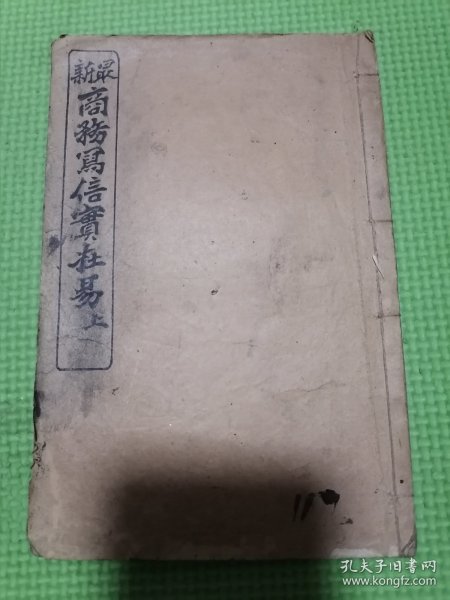 最新
商務寫信實在易
上
孔夫子旧书网
www.kongfz.com